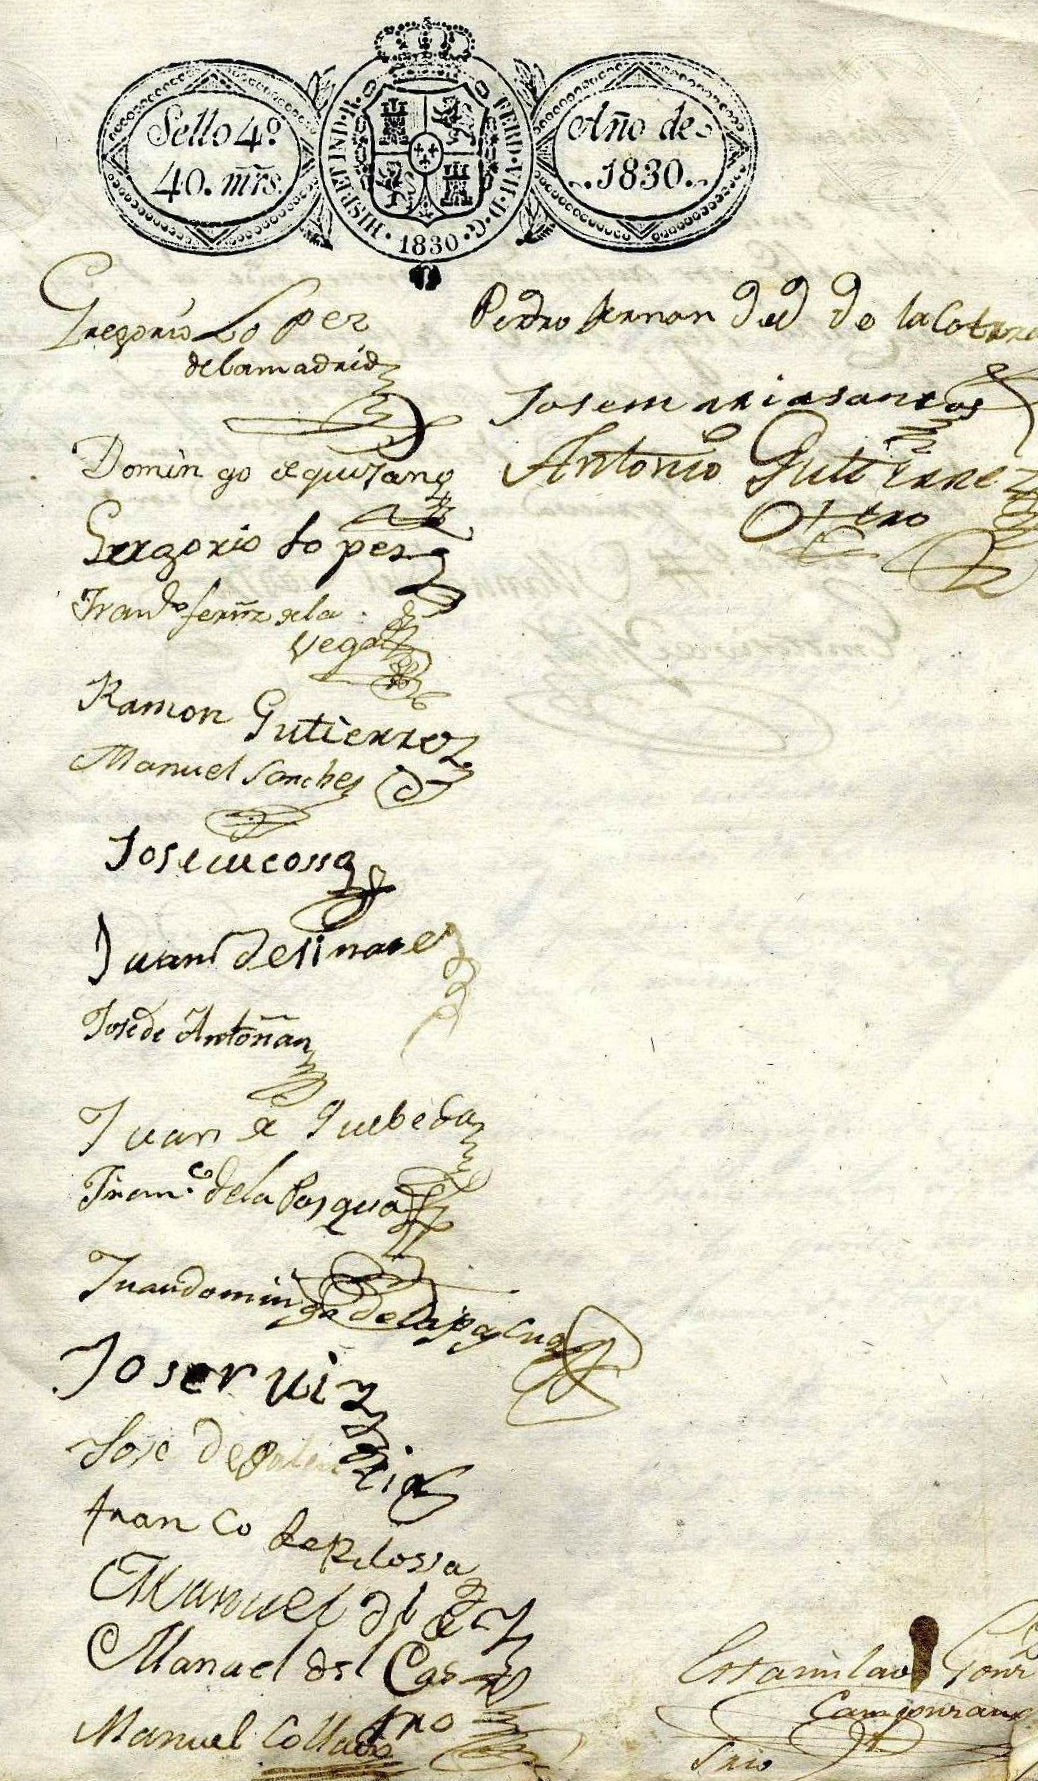 Sello 4º
40. mr̃s.
HISP. ET IND. R.
FERD. VII. D. G.
1830
Año de
1830.
Gregorio Lopez
de la madrid
Domingo de quijano
Gregorio Lopez
Franco fernz de la
Vega
Ramon Gutierrez
Manuel Sanchez
Jose de cossa
Juan de linares
Jose de Antoñan
Juan de Quebeda
Franco de la Pasqua
Juan domingo de la pasqua
Jose ruiz
Jose de Palencia
Franco de
Manuel del
Manuel del Cas
tro
Manuel Collado
Pedro fernandez de la Cotera
Jose maria santos
Antonio Gutierrez
Otero
Estanislao
Campuzano
Srio